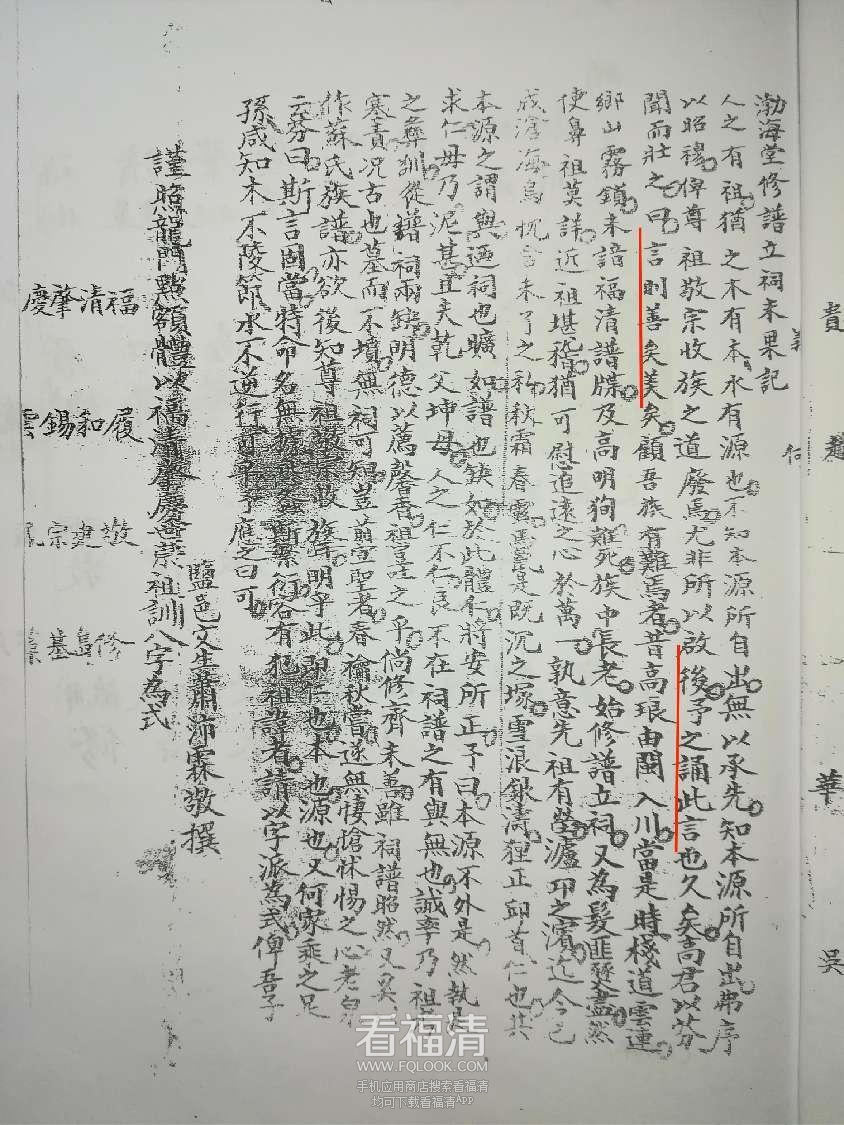 渤海堂修譜立祠未果記
人之有祖猶之木有本水有源也不知本源所自出無以承先知本源所自出弗序
以昭穆俾尊祖敬宗收族之道廢焉尤非所以啟後予之誦此言也久矣高君以芬
聞而壯之曰言則善矣美矣顧吾族有難焉者昔高琅由閩入川當是時棧道雲連
鄉山霧鎖未諳福清譜牒及高明狗難死族中長老始修譜立祠又為髮匪燹盡然
使鼻祖莫詳近祖堪稽猶可慰追遠之心於萬一孰意先祖有塋瀘邛之濱迄今已
成滄海鳥忱言未了之私秋霜春露是既沉之塚雪浪銀濤狸正邱首仁也其
本源之謂與迺祠也曠如譜也缺如於此體仁將安所正予曰本源不外是然執是
求仁毋乃泥甚且夫乾父坤母人之仁不仁良不在祠譜之有與無也誠率乃祖
之彝訓從譜祠兩缺明德以薦馨香祖豈吐之乎倘修齊未善雖祠譜昭然又奚
塞責况古也墓而不墳無祠可知豈前宣聖者春禴秋嘗遂無悽愴怵惕之心老泉
作蘇氏族譜亦欲後知尊祖敬宗收族耳明乎此即仁也本也源也又何家乘之足
云芬曰斯言固當特命名無斯繁衍容有犯祖諱者請以字派為式俾吾子
孫咸知木不陵節水不逆行予應之曰可
鹽邑文生蕭沛霖敬撰
謹照龍門點額體以福清肇慶世崇祖訓八字為式
福清肇慶
履和錫雲
敦建宗
修基
貴
趙
華
吳
看福清
WWW.FQLOOK.COM
手机应用商店搜索看福清
均可下载看福清APP